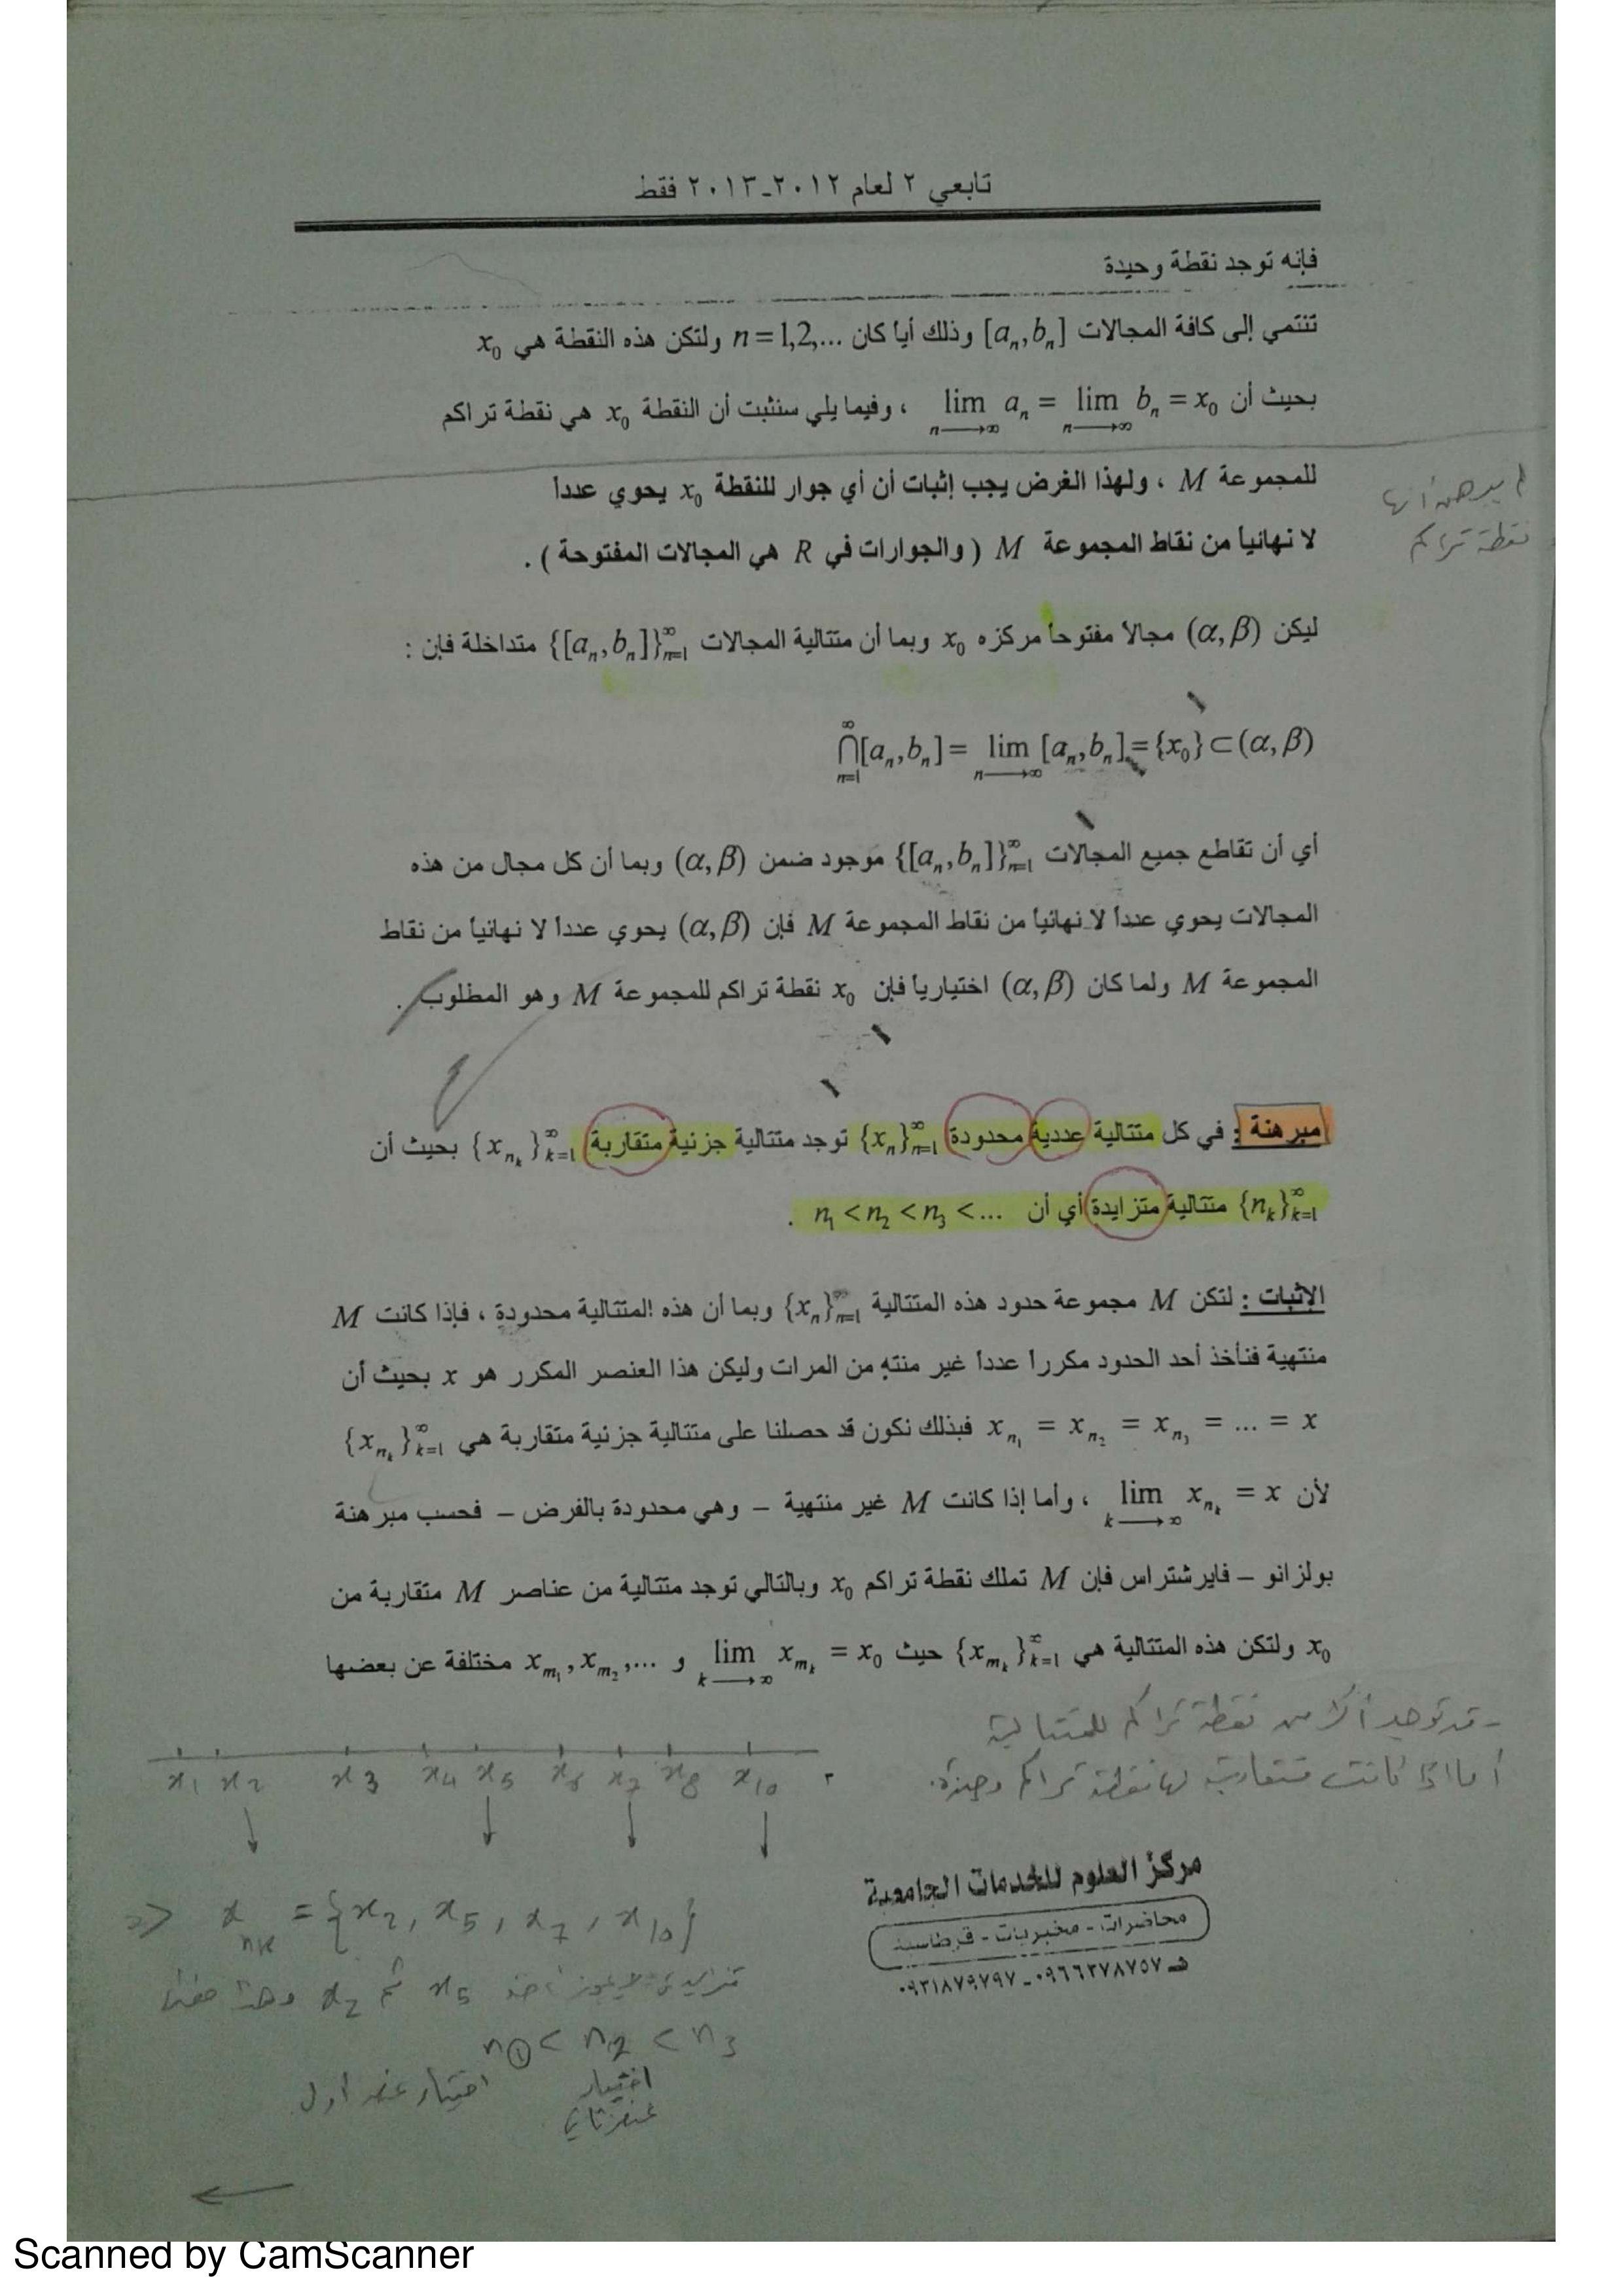 تابعي ٢ لعام ٢٠١٢-٢٠١٣ فقط
فإنه توجد نقطة وحيدة
تنتمي إلى كافة المجالات [aₙ,bₙ] وذلك أياً كان n=1,2,... ولتكن هذه النقطة هي x₀
بحيث أن lim aₙ = lim bₙ = x₀ ، وفيما يلي سنثبت أن النقطة x₀ هي نقطة تراكم
n⟶∞ n⟶∞
للمجموعة M ، ولهذا الغرض يجب إثبات أن أي جوار للنقطة x₀ يحوي عدداً
لا نهائياً من نقاط المجموعة M ( والجوارات في R هي المجالات المفتوحة ) .
نقطة تراكم
ليكن (α,β) مجالاً مفتوحاً مركزه x₀ وبما أن متتالية المجالات {[aₙ,bₙ]}∞ₙ₌₁ متداخلة فإن :
∞⋂ₙ₌₁[aₙ,bₙ] = lim n⟶∞ [aₙ,bₙ] = {x₀} ⊂ (α,β)
أي أن تقاطع جميع المجالات {[aₙ,bₙ]}∞ₙ₌₁ موجود ضمن (α,β) وبما أن كل مجال من هذه
المجالات يحوي عدداً لا نهائياً من نقاط المجموعة M فإن (α,β) يحوي عدداً لا نهائياً من نقاط
المجموعة M ولما كان (α,β) اختيارياً فإن x₀ نقطة تراكم للمجموعة M وهو المطلوب .
مبرهنة : في كل متتالية عددية محدودة {xₙ}∞ₙ₌₁ توجد متتالية جزئية متقاربة {xₙₖ}∞ₖ₌₁ بحيث أن
{nₖ}∞ₖ₌₁ متتالية متزايدة أي أن n₁ < n₂ < n₃ < ... .
الإثبات : لتكن M مجموعة حدود هذه المتتالية {xₙ}∞ₙ₌₁ وبما أن هذه المتتالية محدودة ، فإذا كانت M
منتهية فنأخذ أحد الحدود مكرراً عدداً غير منتهٍ من المرات وليكن هذا العنصر المكرر هو x بحيث أن
xₙ₁ = xₙ₂ = xₙ₃ = ... = x فبذلك نكون قد حصلنا على متتالية جزئية متقاربة هي {xₙₖ}∞ₖ₌₁
لأن lim k⟶∞ xₙₖ = x ، وأما إذا كانت M غير منتهية – وهي محدودة بالفرض – فحسب مبرهنة
بولزانو – فايرشتراس فإن M تملك نقطة تراكم x₀ وبالتالي توجد متتالية من عناصر M متقاربة من
x₀ ولتكن هذه المتتالية هي {xₘₖ}∞ₖ₌₁ حيث lim k⟶∞ xₘₖ = x₀ و xₘ₁, xₘ₂, ... مختلفة عن بعضها
- قد توجد أكثر من نقطة تراكم للمتتالية
أما إذا كانت متقاربة لها نقطة تراكم وحيدة.
x₁ x₂ x₃ x₄ x₅ x₆ x₇ x₈ x₁₀
مركز العلوم للخدمات الجامعية
محاضرات - مخبريات - قرطاسية
هـ ٠٩٦٦٢٧٨٧٥٧ - ٠٩٣١٨٧٩٧٩٧
=> xₙₖ = {x₂, x₅, x₇, x₁₀}
x₅ ثم x₂ وهذا
n₁ < n₂ < n₃
اختيار عنصر أول
اختيار
عنصر ثاني
Scanned by CamScanner